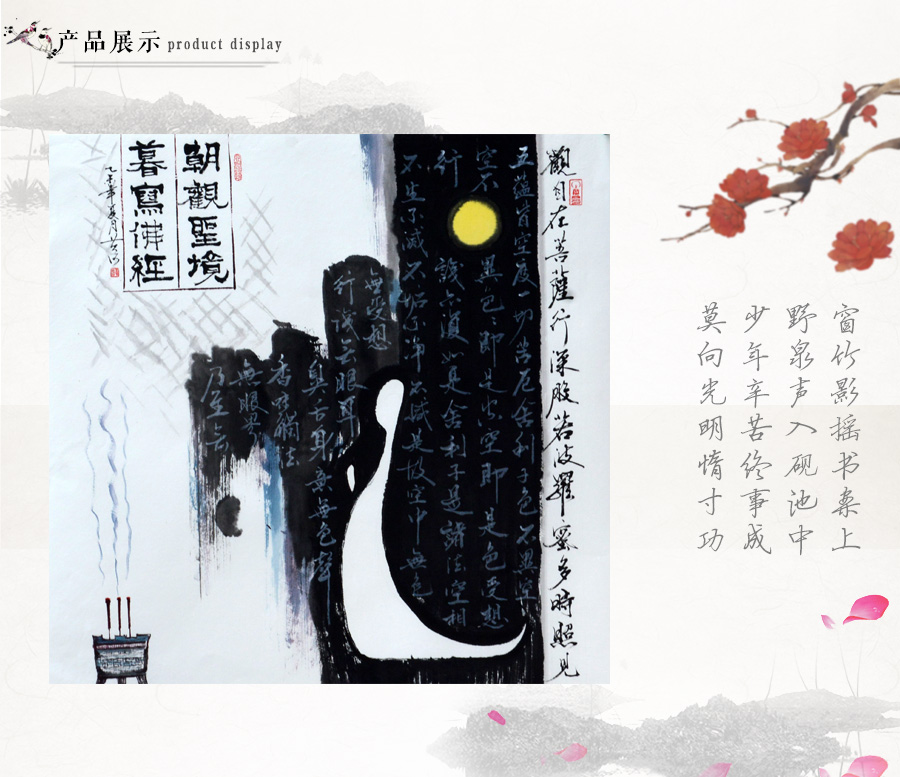 产品展示 product display
朝觀聖境
暮寫佛經
觀自在菩薩行深般若波羅蜜多時照見
五蘊皆空度一切苦厄舍利子色不異空
行識亦復如是舍利子是諸法空相
不生不滅不垢不淨不減是故空中無色
無受想
行識無眼耳
鼻舌身無無色聲
香味觸法
無眼界
乃至無
窗竹影摇书案上
野泉声入砚池中
少年辛苦终事成
莫向光明惰寸功